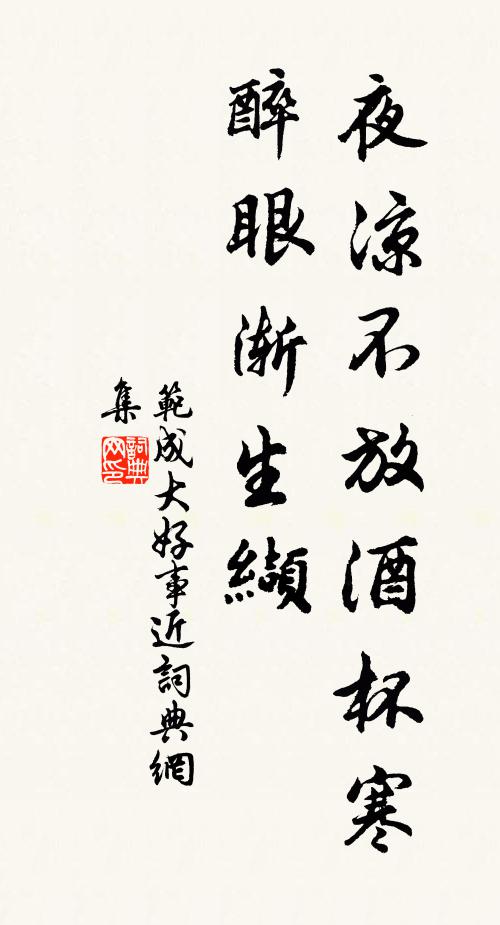 夜涼不放酒杯寒
醉眼漸生纈
範成大好事近詞典網
集
詞典
网印